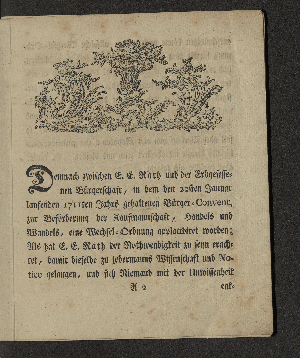 Demnach zwischen E. E. Rath und der Erbgesesse-
nen Bürgerschaft, in dem den 22sten Januar
laufenden 1711ten Jahrs gehaltenen Bürger-Convent,
zur Beförderung der Kaufmannschaft, Handels und
Wandels, eine Wechsel-Ordnung placidiret worden;
Als hat E. E. Rath der Nothwendigkeit zu seyn erach-
tet, damit dieselbe zu jedermanns Wissenschaft und No-
tice gelangen, und sich Niemand mit der Unwissenheit
A 2
ent-